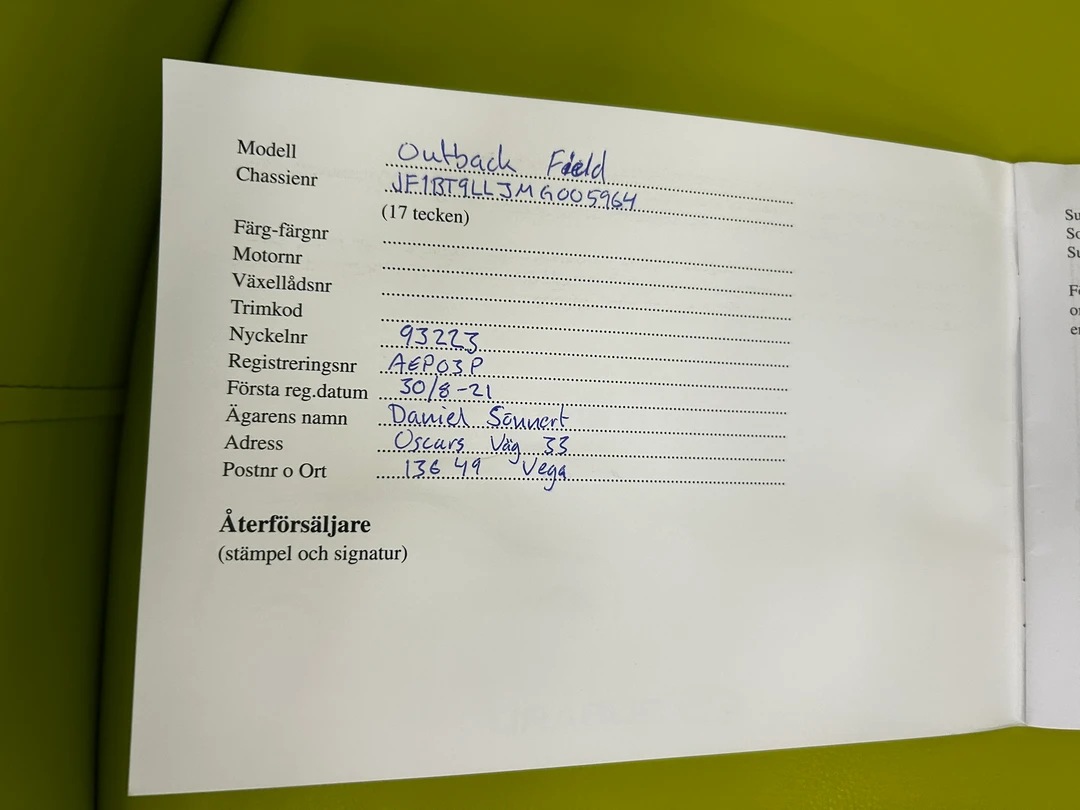 Modell Outback Field
Chassienr JF1BT9LLJMG005964
(17 tecken)
Färg-färgnr
Motornr
Växellådsnr
Trimkod
Nyckelnr 93223
Registreringsnr AEP03P
Första reg.datum 30/8-21
Ägarens namn Daniel Sönnert
Adress Oscars Väg 33
Postnr o Ort 136 49 Vega
Återförsäljare
(stämpel och signatur)
Su
So
Su